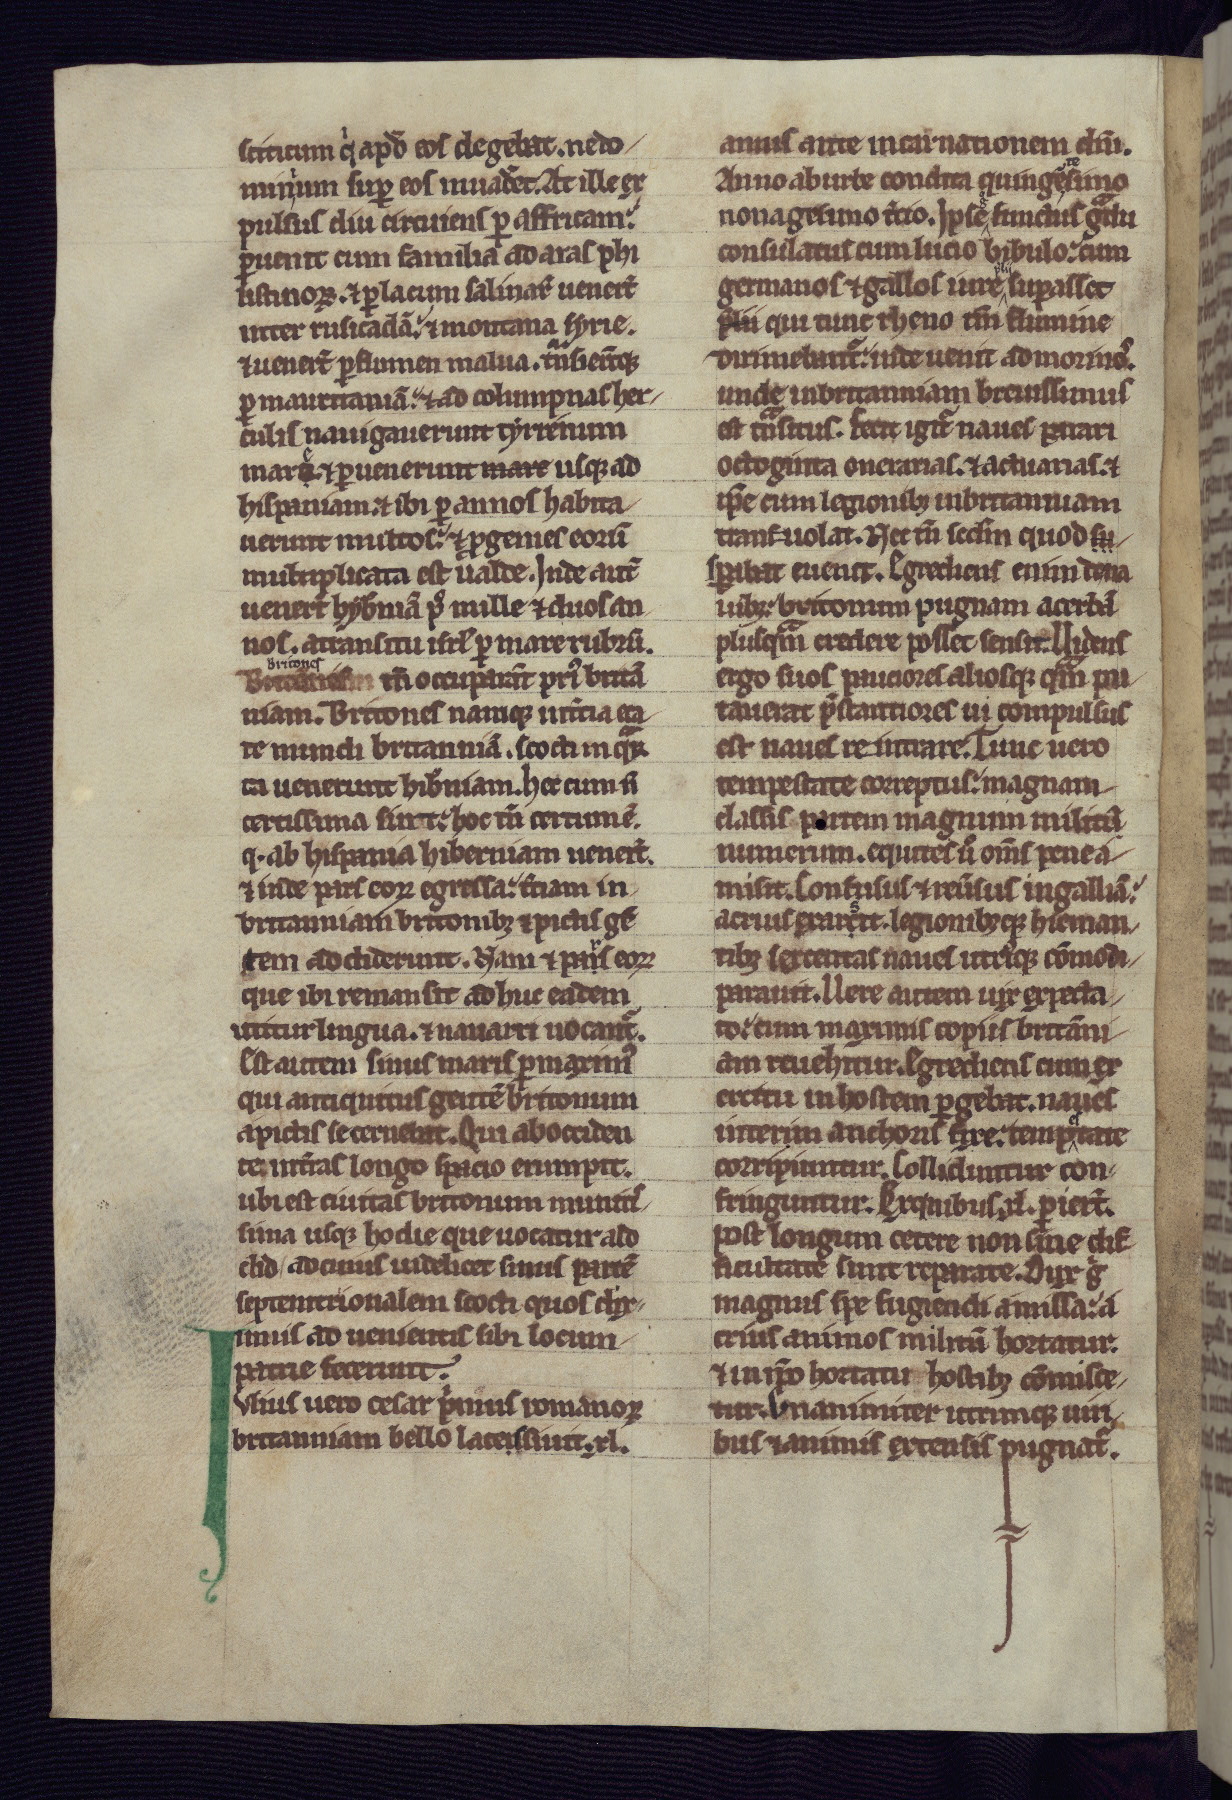 stititum q̇ apđ eos degebat. nedo/
minium suꝑ eos inuad̾et. At ille ex
pulsus diu circuiens ꝑ affricam.
ꝑuenit cum familia ad aras phi
listinoꝝ. ⁊ ꝑ lacum salinaꝝ uener̄t
inter rusicadā. ⁊ montana syrie.
⁊ uener̄t ꝑ flumen malua. t̾nsieruntqꝫ
ꝑ mauritaniā. ⁊ ad columpnas her/
culis nauigauerunt tyrrenum
mare. ⁊ ꝑuenerunt mare usqꝫ ad
hispaniam. ⁊ ibi ꝑ annos habita
uerunt multos. ⁊ ꝓgenies eorū
multiplicata est ualde. Inde autē
uener̄t hyb̾niā p̾ mille ⁊ duos an
nos. a transitu isrl̄ ꝑ mare rubrū.
Britones
tn̄ occuparūt pri᷒ britā
niam. Britones namqꝫ in t̾cia eta
te mundi britanniā. scocti in q̾r
ta uenerunt hib̾niam. Hec cum ñ
certissima sint. hoc tn̄ certum ē.
q. ab hispania hiberniam uener̄t.
⁊ inde pars eoꝝ egressa. t̾ciam in
britanniam britonibꝫ ⁊ pictis gē
tem addiderunt. Nam ⁊ pars eoꝝ
que ibi remansit adhuc eadem
utitur lingua. ⁊ nauarri uocant̾.
Est autem sinus maris ꝑmaxim᷒
qui antiquitus gentē britonum
a pictis secernebat. Qui ab occiden
te intras longo spacio erumpit.
ubi est ciuitas britonum munitis/
sima usqꝫ hodie que uocatur ad
clid / ad cuius uidelicet sinus partē
septemtrionalem scocti quos dix/
imus aduenientes sibi locum
patrie fecerunt.
Iulius uero cesar p̾mus romanoꝝ
britanniam bello lacessiuit. xl.
annis ante incarnationem dn̄i.
Anno ab urbe condita quingētesimo
nonagesimo t̾cio. Ipse g̾ functus g̾du
consulatus cum lucio bybulo. cum
germanos ⁊ gallos iure plii suꝑasset
plii qui tunc rheno tn̄ flumine
dirimebant̾. inde uenit ad morinos.
unde in britanniam breuissimus
est t̾nsitus. Fecit igit̾ naues parari
octoginta onerarias. ⁊ actuarias. ⁊
ip̄e cum legionibꝫ in britanniam
transuolat. Nec tn̄ sed̄m quod su
sperabat euenit. Egrediens enim dena
uibꝫ. britonum pugnam acerbā
plusq̄m credere posset sensit. Uidens
ergo suos pauciores aliosqꝫ q̄m pu
tauerat p̄stantiores ui compulsus
est naues reintrare. Tunc uero
tempestate correptus. magnam
classis partem magnum militū
numerum. equites ū om̄s pene a/
misit. Confusus ⁊ reu̾sus in galliā.
acrius exarsit. legionibusqꝫ hieman/
tibꝫ sexcentas naues utriusqꝫ cōmodi/
parauit. Uere autem uix expecta/
to. cum maximis copiis britāni/
am reuehitur. Egrediens cum ex
ercitu in hostem ꝑgebat. naues
interim anchoris fixe. tempestate
corripiuntur. Colliduntur con/
fringuntur. Ex quibus. xl. ꝑier̄t.
Post longum cetere non sine dif
ficultate sunt reparate. Dux g̾
magnus spe fugiendi amissa. a
crius animos militū hortatur.
⁊ in ip̄o hortatu hostibꝫ cōmisce/
tur. Unanimiter utrimqꝫ uiri
bus ⁊ animis extensis pugnat̾.